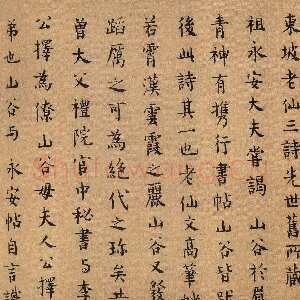 東坡老仙三詩先世舊所藏
祖永安大夫嘗謁山谷於眉
青神有攜行書帖山谷皆跋
後此詩其一也老仙文高筆
若霄漢雲霞之麗山谷又發
蹈厲之可為絕代之珍矣
曾大父禮院官中秘書與李
公擇為僚山谷母夫人公擇
弟也山谷與永安帖自言識